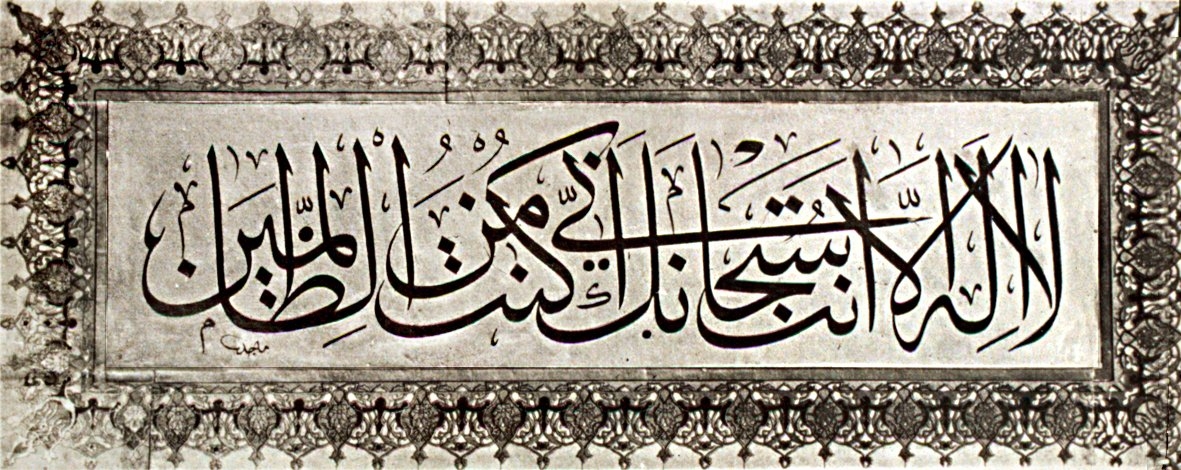 لا اله الا انت سبحانك اني كنت من الظالمين
ماجد